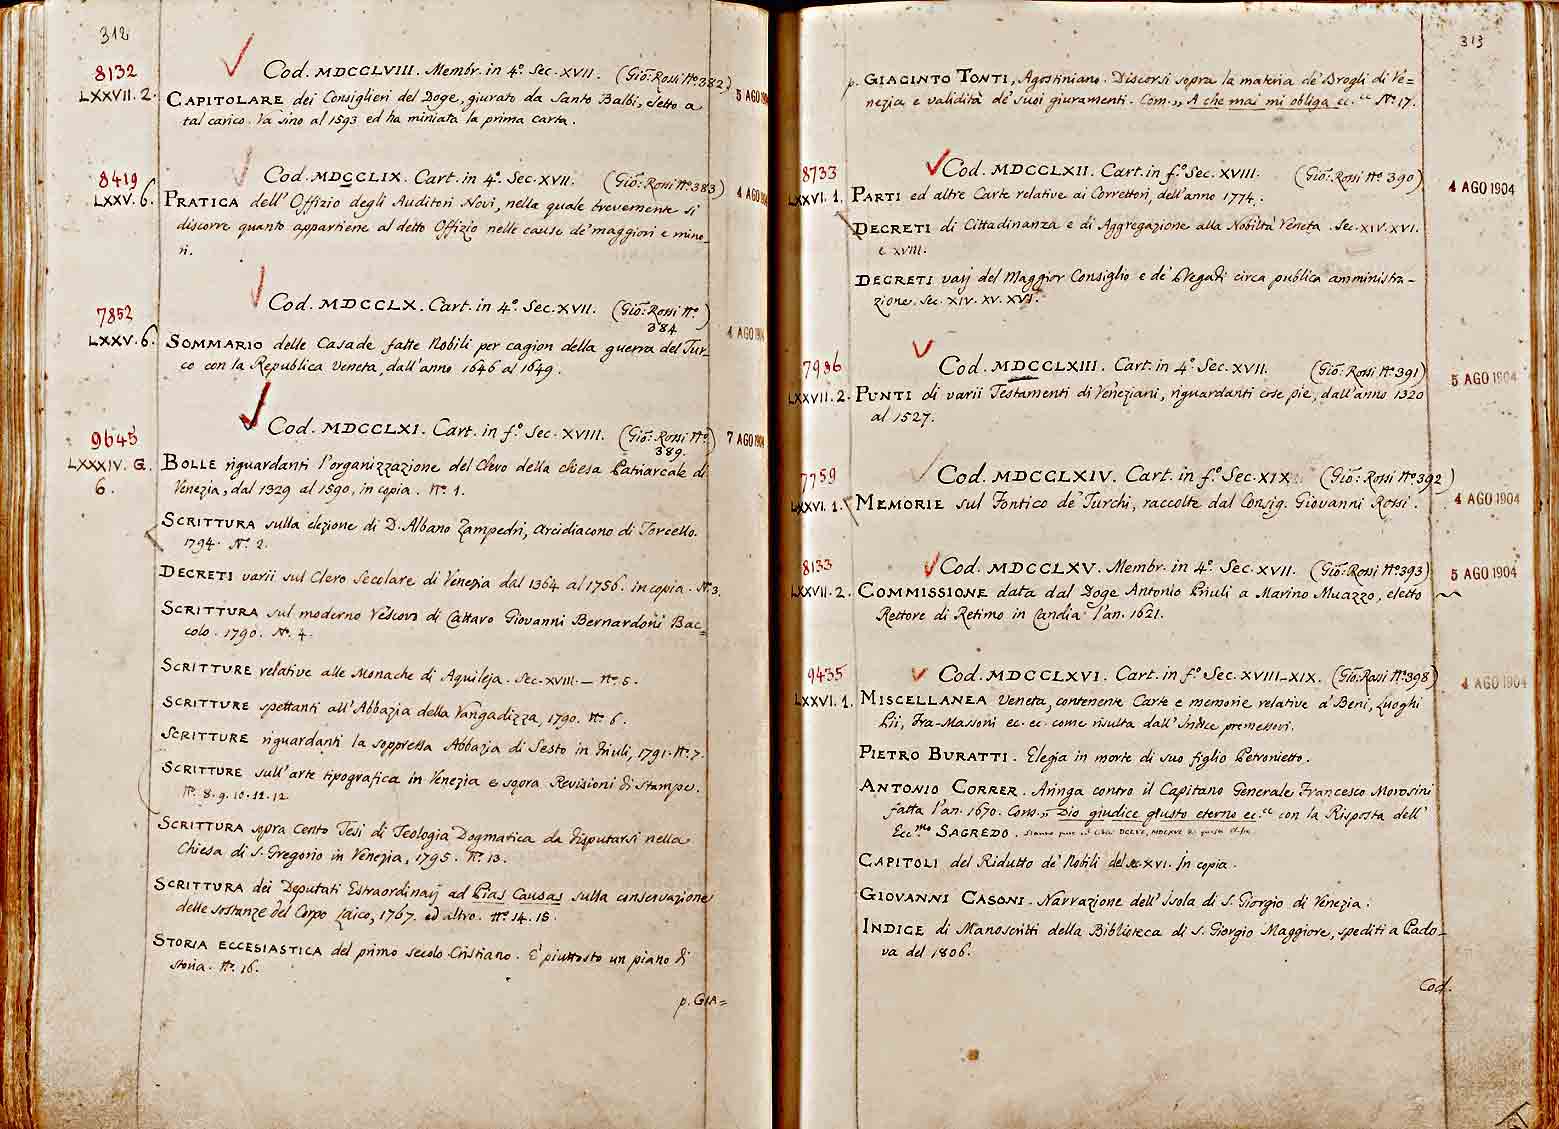 312
8132
LXXVII. 2.
Cod. MDCCLVIII. Membr. in 4.º Sec. XVII. (Gio: Rossi Nº 382)
5 AGO
CAPITOLARE dei Consiglieri del Doge, giurato da Santo Balbi, eletto a
tal carico. Va sino al 1593 ed ha miniata la prima carta.
8419
LXXV. 6.
Cod. MDCCLIX. Cart. in 4.º Sec. XVII. (Gio: Rossi Nº 383)
4 AGO
PRATICA dell'Offizio degli Auditori Novi, nella quale brevemente si
discorre quanto appartiene al detto Offizio nelle cause de' maggiori e mino-
ri.
7852
LXXV. 6.
Cod. MDCCLX. Cart. in 4.º Sec. XVII. (Gio: Rossi Nº
384)
4 AGO
SOMMARIO delle Casade fatte Nobili per cagion della guerra del Tur-
co con la Republica Veneta, dall'anno 1646 al 1649.
9645
LXXXIV. G.
6.
Cod. MDCCLXI. Cart. in f.º Sec. XVIII. (Gio: Rossi Nº
389.)
7 AGO
BOLLE riguardanti l'organizzazione del Clero della chiesa Patriarcale di
Venezia, dal 1329 al 1590, in copia. Nº 1.
SCRITTURA sulla elezione di D. Albano Zampedri, arcidiacono di Torcello.
1794. Nº 2.
DECRETI varii sul Clero Secolare di Venezia dal 1364 al 1756. in copia. Nº 3.
SCRITTURA sul moderno Vescovo di Cattaro Giovanni Bernardoni Bac=
colo. 1790. Nº 4.
SCRITTURE relative alle Monache di Aquileja. Sec. XVIII. — Nº 5.
SCRITTURE spettanti all'Abbazia della Vangadizza, 1790. Nº 6.
SCRITTURE riguardanti la soppressa Abbazia di Sesto in Friuli, 1791. Nº 7.
SCRITTURE sull'arte tipografica in Venezia e sopra Revisioni di Stampe.
Nº 8. 9. 10. 11. 12.
SCRITTURA sopra Cento Tesi di Teologia Dogmatica da disputarsi nella
Chiesa di S. Gregorio in Venezia, 1795. Nº 13.
SCRITTURA dei Deputati Estraordinarj ad Pias Causas sulla conservazione
delle sostanze del Corpo Laico, 1767. ed altro. Nº 14. 15.
STORIA ECCESIASTICA del primo secolo Cristiano. È piuttosto un piano di
storia. Nº 16.
p. GIA=
313
p. GIACINTO TONTI, Agostiniano. Discorsi sopra la materia de' Brogli di Ve=
nezia e validità de' suoi giuramenti. Com. „ A che mai mi obliga ec. Nº 17.
8733
LXXVI. 1.
Cod. MDCCLXII. Cart. in f.º Sec. XVIII. (Gio: Rossi Nº 390)
4 AGO 1904
PARTI ed altre Carte relative ai Correttori, dell'anno 1774.
DECRETI di Cittadinanza e di Aggregazione alla Nobiltà Veneta. Sec. XIV. XVI.
e XVIII.
DECRETI varj del Maggior Consiglio e de' Pregadi circa publica amministra-
zione. Sec. XIV. XV. XVI.
7936
LXXVII. 2.
Cod. MDCCLXIII. Cart. in 4.º Sec. XVII. (Gio: Rossi Nº 391)
5 AGO 1904
PUNTI di varii Testamenti di Veneziani, riguardanti cose pie, dall'anno 1320
al 1527.
7759
LXXVI. 1.
Cod. MDCCLXIV. Cart. in f.º Sec. XIX. (Gio: Rossi Nº 392)
4 AGO 1904
MEMORIE sul Fontico de' Turchi, raccolte dal Consig. Giovanni Rossi.
8133
LXXVII. 2.
Cod. MDCCLXV. Membr. in 4.º Sec. XVII. (Gio: Rossi Nº 393)
5 AGO 1904
COMMISSIONE data dal Doge Antonio Priuli a Marino Muazzo, eletto
Rettore di Retimo in Candia l'an. 1621.
9435
LXXVI. 1.
Cod. MDCCLXVI. Cart. in f.º Sec. XVIII-XIX. (Gio: Rossi Nº 398)
4 AGO 1904
MISCELLANEA Veneta, contenente Carte e memorie relative a' Beni, Luoghi
Pii, Fra-Massoni ec. ec. come risulta dall'Indice premessovi.
PIETRO BURATTI. Elegia in morte di suo figlio Petronietto.
ANTONIO CORRER. Aringa contro il Capitano Generale Francesco Morosini
fatta l'an. 1670. Com. „ Dio giudice giusto eterno ec. con la Risposta dell'
Ecc.mo SAGREDO.
CAPITOLI del Ridutto de' Nobili del sec. XVI. In copia.
GIOVANNI CASONI. Narrazione dell'Isola di S. Giorgio di Venezia.
INDICE di Manoscritti della Biblioteca di S. Giorgio Maggiore, spediti a Pado-
va del 1806.
Cod.